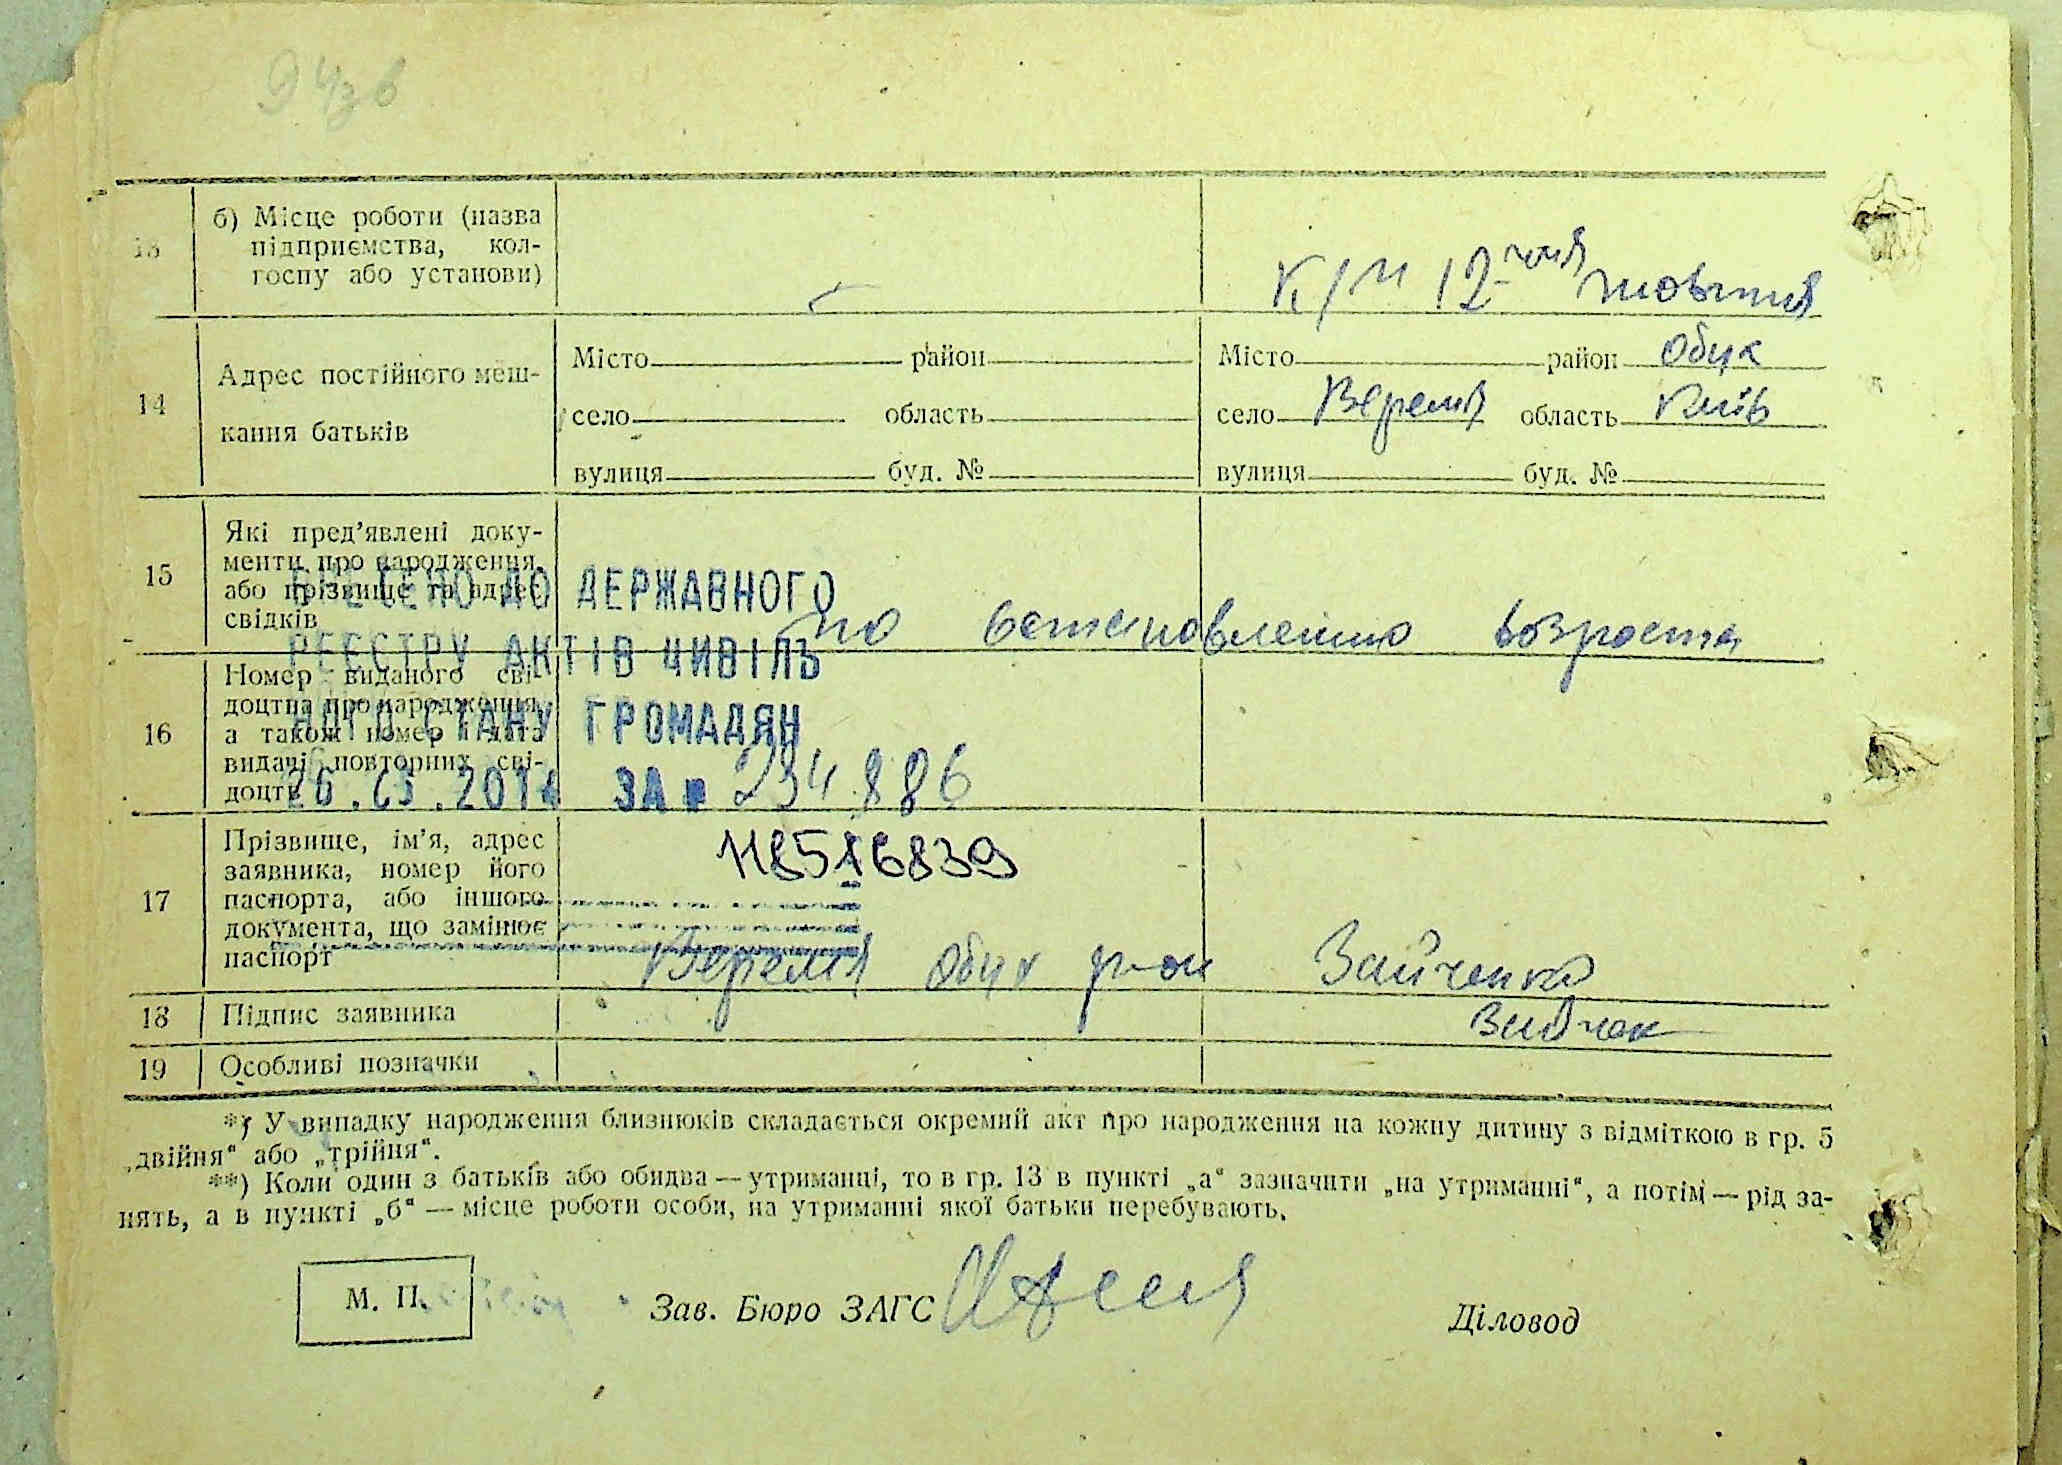 94зв
13
б) Місце роботи (назва
підприємства, кол-
госпу або установи)
К/г 12-річчя жовтня
14
Адрес постійного меш-
кання батьків
Місто район
село область
вулиця буд. №
Місто район Обух
село Веремя область Київ
вулиця буд. №
15
Які пред’явлені доку-
менти про народження,
або прізвище та адрес
свідків
по встановлению возраста
ВНЕСЕНО ДО ДЕРЖАВНОГО
РЕЄСТРУ АКТІВ ЦИВІЛЬ
НОГО СТАНУ ГРОМАДЯН
ЗА № 234886
16
Номер виданого сві-
доцтва про народження,
а також номер і дата
видачі повторних сві-
доцтв
17
Прізвище, ім’я, адрес
заявника, номер його
паспорта, або іншого
документа, що замінює
паспорт
Веремя Обух р-он Зайченко
18
Підпис заявника
Зайчен
19
Особливі позначки
*) У випадку народження близнюків складається окремий акт про народження на кожну дитину з відміткою в гр. 5
„двійня“ або „трійня“.
**) Коли один з батьків або обидва — утриманці, то в гр. 13 в пункті „а“ зазначити „на утриманні“, а потім — рід за-
нять, а в пункті „б“ — місце роботи особи, на утриманні якої батьки перебувають.
М. П.
Зав. Бюро ЗАГС
Діловод